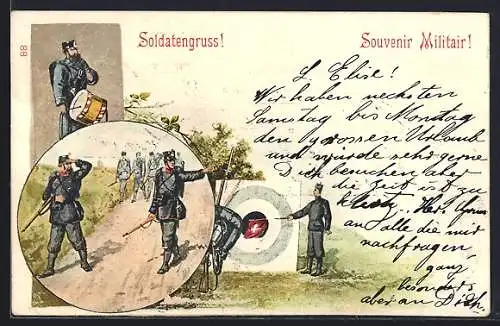 88
Soldatengruss!
Souvenir Militair!
L. Elise!
Wir haben nechsten
Samstag bis Montag
den grossen Urlaub
und würde sehr gerne
Dich besuchen aber
die Zeit ist zu
an alle die mir
nachfragen,
ganz
besonders
aber an Dich.